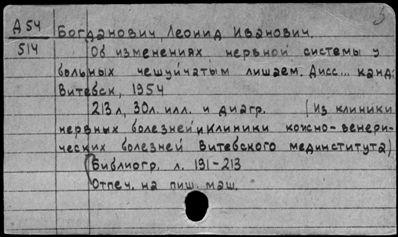 5
А 54 Богданович, Леонид Иванович.
514 Об изменениях нервной системы у
больных чешуйчатым лишаем. Дисс... канд.
Витебск, 1954
213 л, 30 л. илл. и диагр. (Из клиники
нервных болезней и клиники кожно-венери-
ческих болезней Витебского мединститута)
Библиогр. л. 191-213
Отпеч. на пиш. маш.